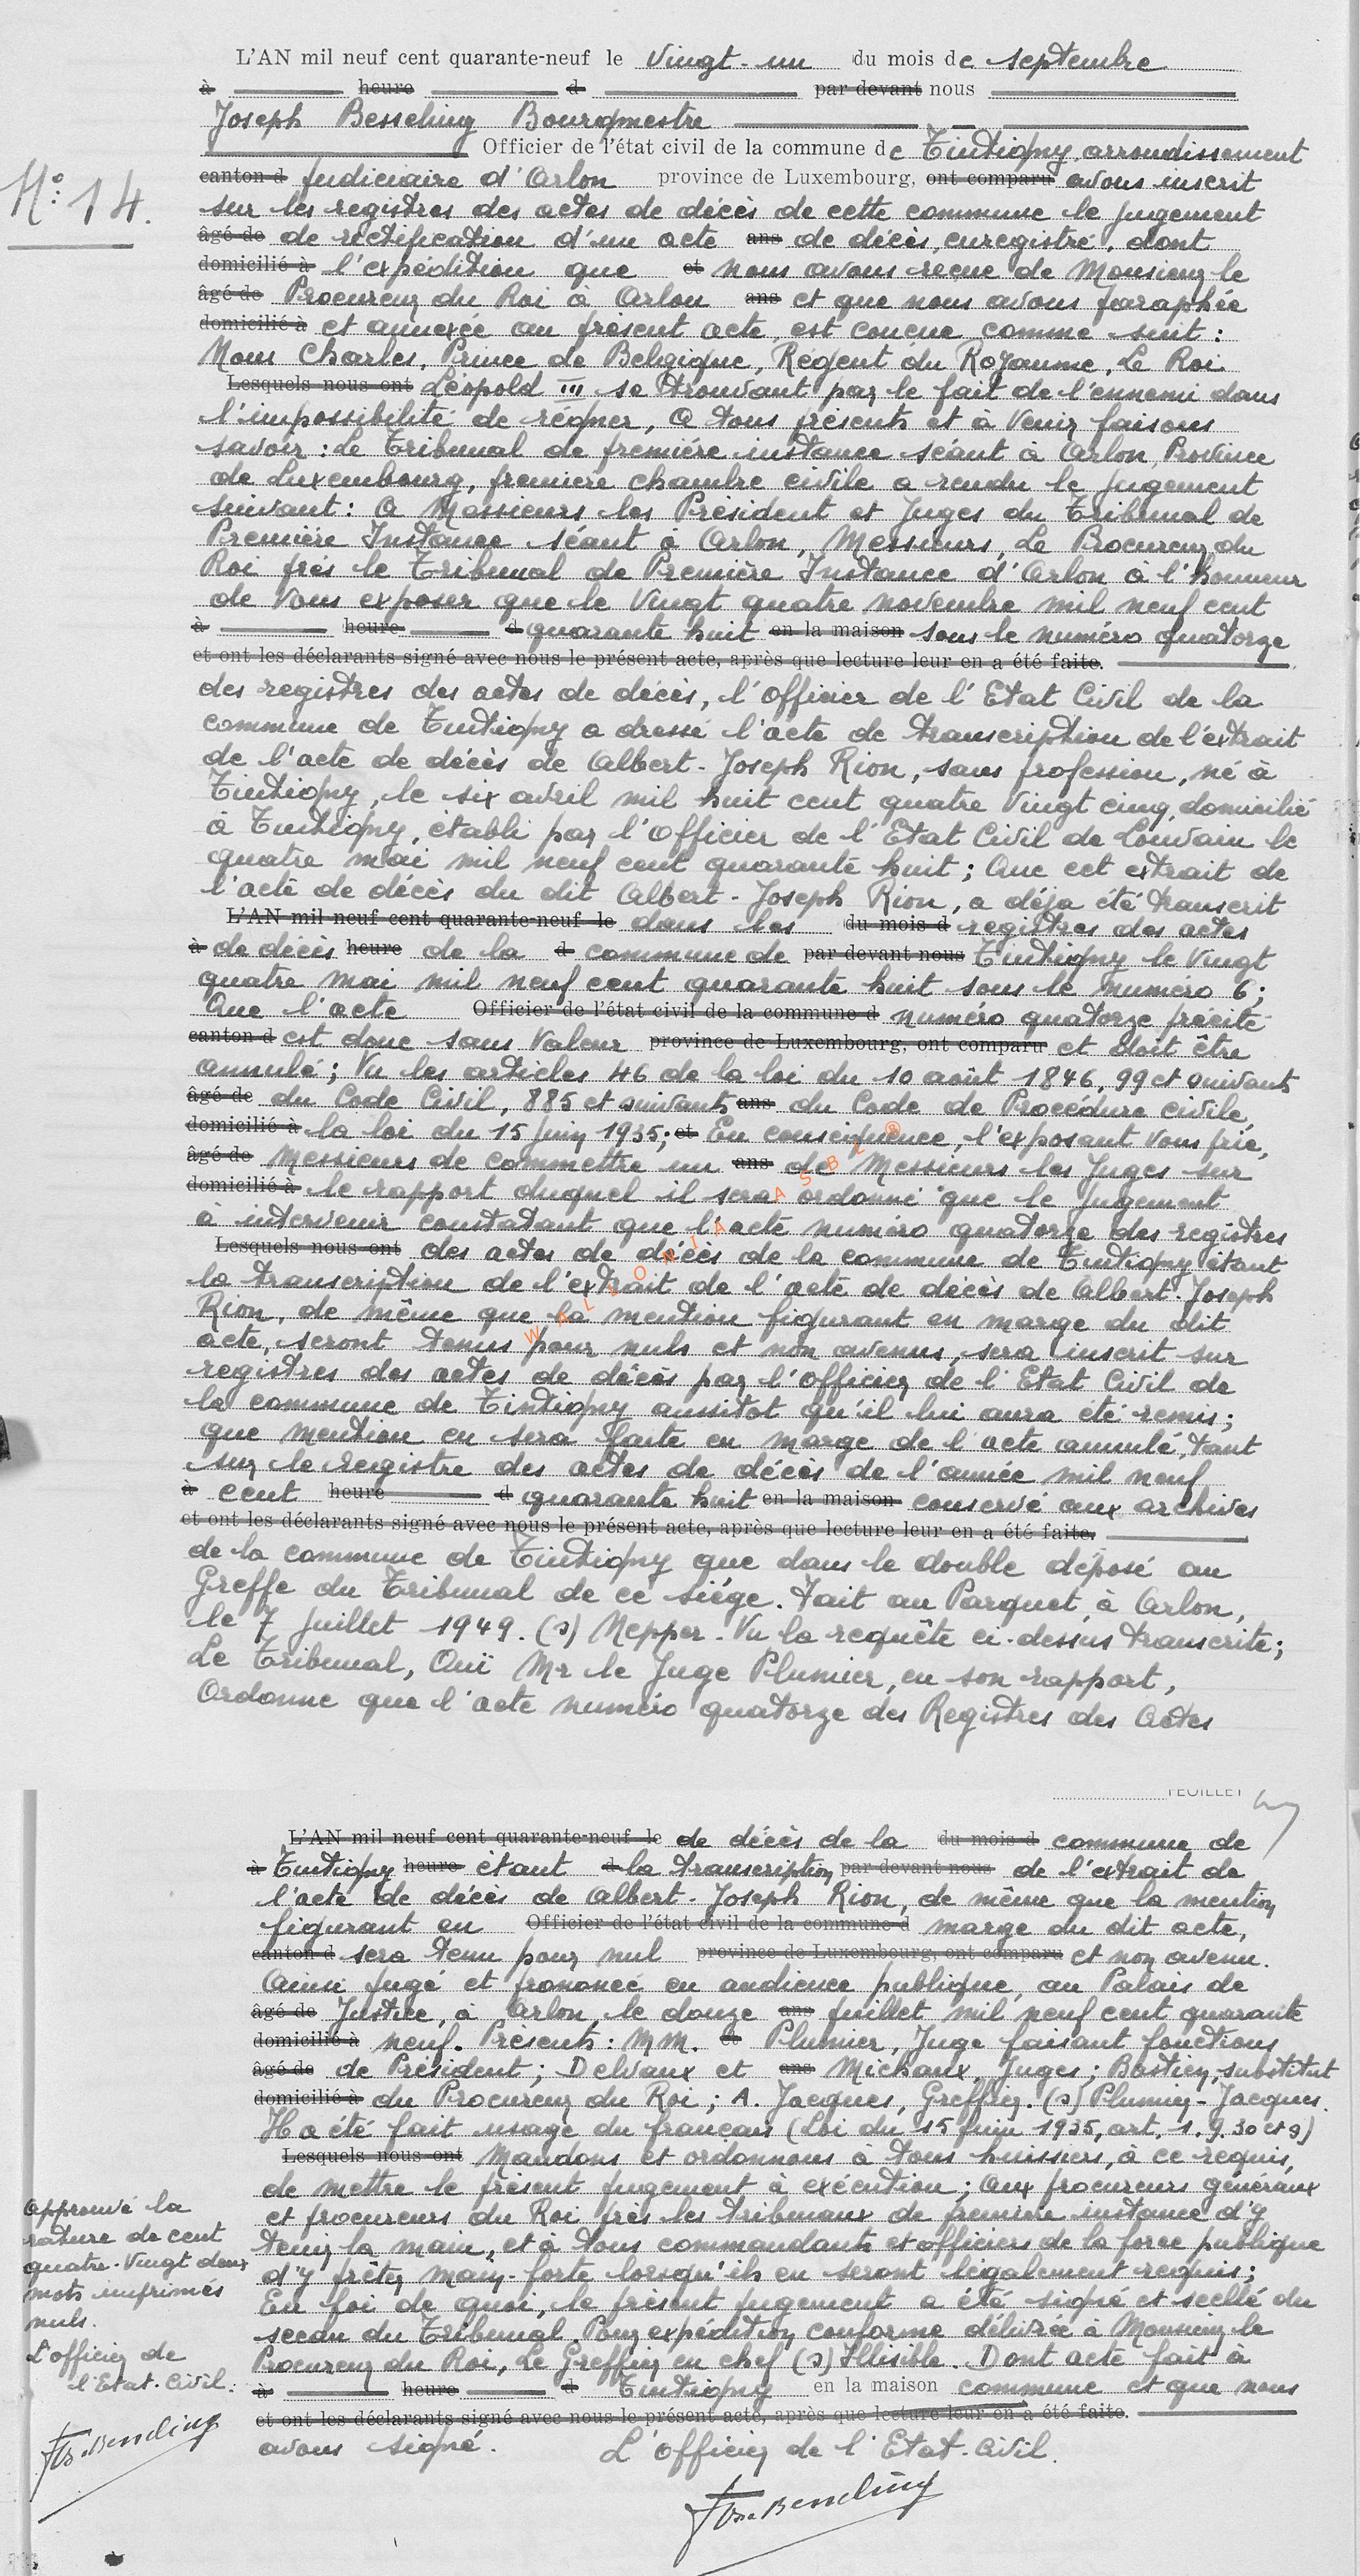 L'AN mil neuf cent quarante-neuf le Vingt-un du mois de septembre
à heure d par devant nous
Joseph Besseling Bourgmestre
Officier de l'état civil de la commune de Tintigny, arrondissement
N°: 14.
canton d judiciaire d'Arlon province de Luxembourg, ont comparu avons inscrit
sur les registres des actes de décès de cette commune le jugement
âgé de de rectification d'un acte ans de décès, enregistré, dont
domicilié à l'expédition que et nous avons reçue de Monsieur le
âgé de Procureur du Roi à Arlon ans et que nous avons paraphée
domicilié à et annexée au présent acte, est concue comme suit:
Nous Charles, Prince de Belgique, Régent du Royaume, Le Roi
Lesquels nous ont Léopold III se trouvant par le fait de l'ennemi dans
l'impossibilité de régner, A tous présents et à Venir faisons
savoir: Le Tribunal de première instance séant à Arlon, Province
de Luxembourg, première chambre civile a rendu le jugement
suivant: A Messieurs les Président et Juges du Tribunal de
Première Instance séant à Arlon, Messieurs, Le Procureur du
Roi près le Tribunal de Première Instance d'Arlon à l'honneur
de Vous exposer que le Vingt quatre novembre mil neuf cent
à heure d quarante huit en la maison sous le numéro quatorze
et ont les déclarants signé avec nous le présent acte, après que lecture leur en a été faite.
des registres des actes de décès, l'Officier de l'Etat Civil de la
commune de Tintigny a dressé l'acte de transcription de l'extrait
de l'acte de décès de Albert-Joseph Rion, sans profession, né à
Tintigny, le six avril mil huit cent quatre Vingt cinq, domicilié
à Tintigny, établi par l'Officier de l'Etat Civil de Louvain le
quatre mai mil neuf cent quarante huit; Que cet extrait de
l'acte de décès du dit Albert-Joseph Rion, a déja été transcrit
L'AN mil neuf cent quarante-neuf le dans les du mois d registres des actes
à de décès heure de la d commune de par devant nous Tintigny le Vingt
quatre mai mil neuf cent quarante huit sous le numéro 6;
Que l'acte Officier de l'état civil de la commune d numéro quatorze précité
canton d est donc sans Valeur province de Luxembourg, ont comparu et doit être
annulé; Vu les articles 46 de la loi du 10 août 1846, 99 et suivants
âgé de du Code Civil, 885 et suivants ans du Code de Procédure civile,
domicilié à la loi du 15 juin 1935; et En conséquence, l'exposant Vous prie,
âgé de Messieurs de commettre un ans de Messieurs les Juges sur
domicilié à le rapport duquel il sera ordonné que le jugement
à intervenir constatant que l'acte numéro quatorze des registres
Lesquels nous ont des actes de décès de la commune de Tintigny étant
la transcription de l'extrait de l'acte de décès de Albert-Joseph
Rion, de même que la mention figurant en marge du dit
acte, seront tenus pour nuls et non avenus, sera inscrit sur
registres des actes de décès par l'Officier de l'Etat Civil de
la commune de Tintigny aussitot qu'il lui aura été remis;
que mention en sera faite en marge de l'acte annulé, tant
sur le registre des actes de décès de l'année mil neuf
à cent heure d quarante huit en la maison conservé aux archives
et ont les déclarants signé avec nous le présent acte, après que lecture leur en a été faite.
de la commune de Tintigny que dans le double déposé au
Greffe du Tribunal de ce siége. Fait au Parquet, à Arlon,
le 7 Juillet 1949. (s) Nepper. Vu la requête ci-dessus transcrite;
Le Tribunal, Ouï Mr le Juge Plumier, en son rapport,
Ordonne que l'acte numéro quatorze des Registres des Actes
WALLONIA ASBL ®
FEUILLET
L'AN mil neuf cent quarante-neuf le de décès de la du mois d commune de
à Tintigny heure étant d la transcription par devant nous de l'extrait de
l'acte de décès de Albert-Joseph Rion, de même que la mention
figurant en Officier de l'état civil de la commune d marge du dit acte,
canton d sera tenu pour nul province de Luxembourg, ont comparu et non avenu.
Ainsi jugé et prononcé en audience publique, au Palais de
âgé de Justice, à Arlon, le douze ans juillet mil neuf cent quarante
domicilié à neuf. Présents: MM. et Plumier, Juge faisant fonctions
âgé de de Président; Delvaux et ans Michaux, Juges; Bastien, substitut
domicilié à du Procureur du Roi; A. Jacques, Greffier. (s) Plumier-Jacques.
Il a été fait usage du français (Loi du 15 juin 1935, art. 1. 9. 30 et 9)
Lesquels nous ont Mandons et ordonnons à tous huissiers, à ce requis,
de mettre le présent jugement à exécution; Aux procureurs généraux
et procureurs du Roi près les tribunaux de première instance d'y
tenir la main, et à tous commandants et officiers de la force publique
d'y prêter main-forte lorsqu'ils en seront légalement requis;
En foi de quoi, le présent jugement a été signé et scellé du
sceau du Tribunal. Pour expédition conforme délivrée à Monsieur le
Procureur du Roi, Le Greffier en chef (s) Illisible. Dont acte fait à
à heure d Tintigny en la maison commune et que nous
et ont les déclarants signé avec nous le présent acte, après que lecture leur en a été faite.
avons signé. L'Officier de l'Etat-Civil.
Jos. Besseling
Approuvé la
rature de cent
quatre-Vingt deux
mots imprimés
nuls.
L'Officier de
l'Etat-Civil.
Jos. Besseling